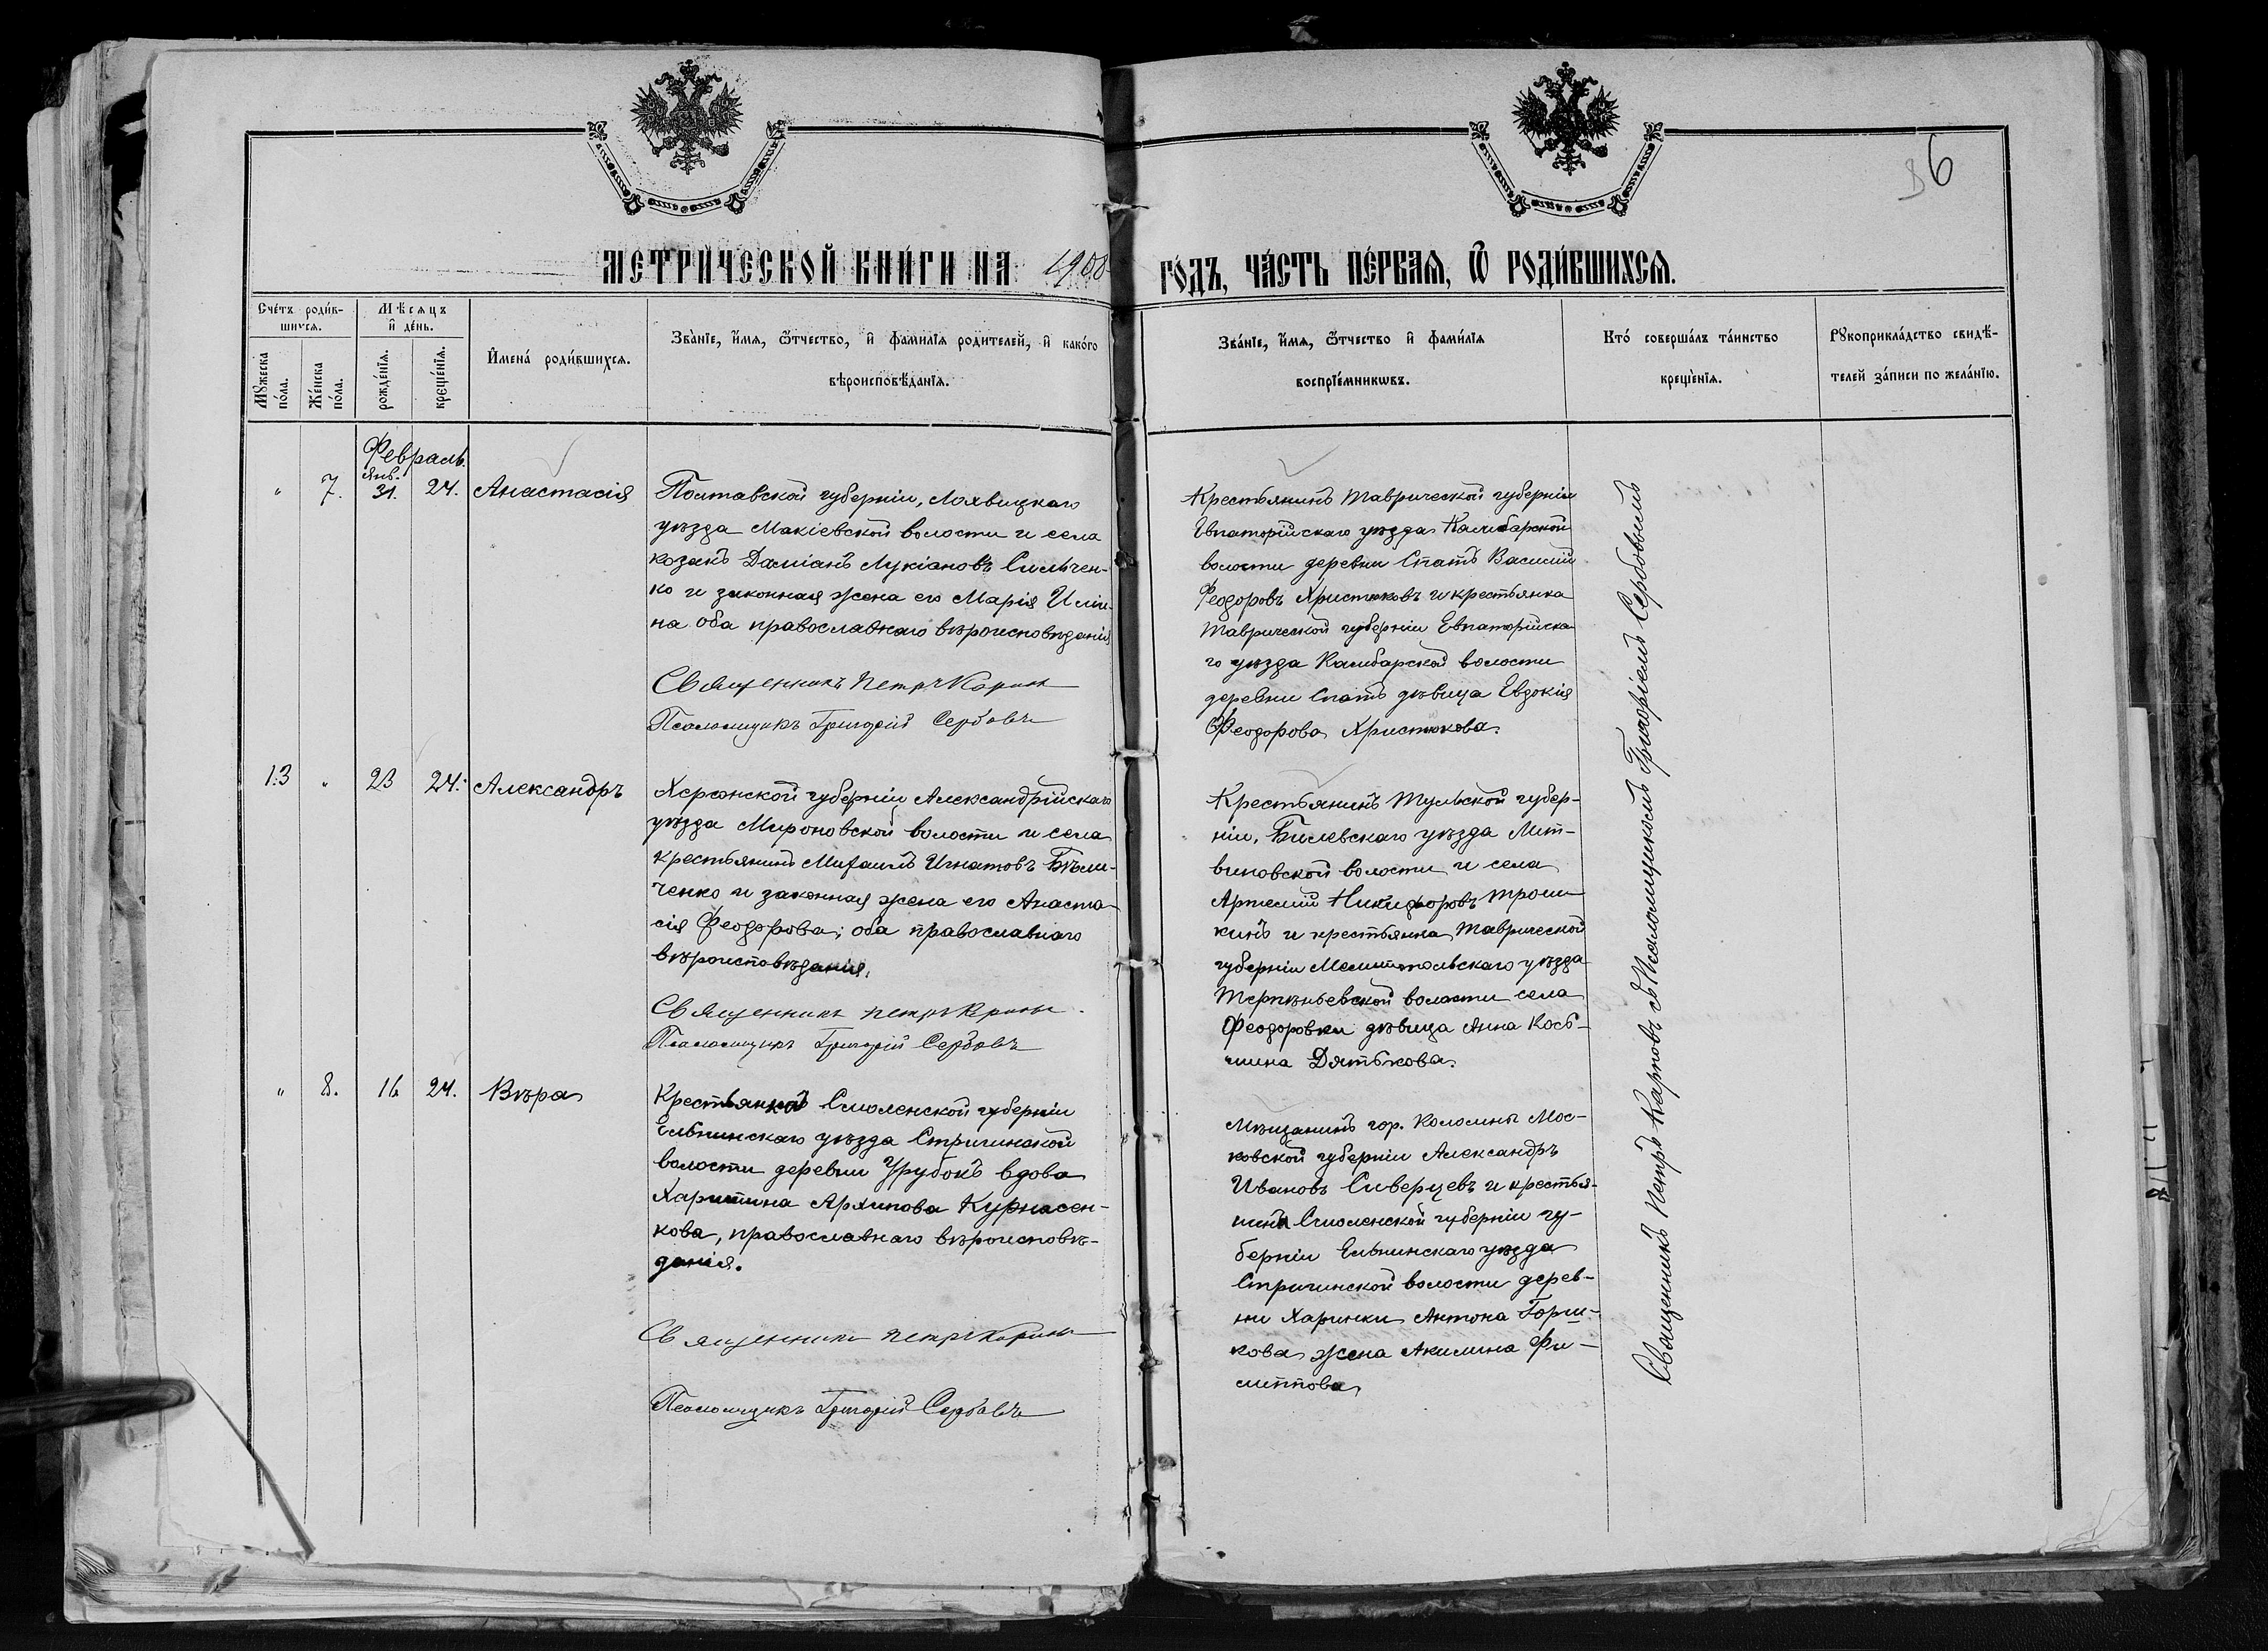 6
МЕТРИЧЕСКОЙ КНИГИ НА 1908 ГОДЪ, ЧАСТЬ ПЕРВАЯ, Ѿ РОДИВШИХСЯ.
Счетъ родив-
шихся.
Мѣсяцъ
и день.
Мужеска
пола.
Женска
пола.
рожденія.
крещенія.
Имена родившихся.
Званіе, имя, ѿтчество, и фамилія родителей, и какого
вѣроисповѣданія.
Званіе, имя, ѿтчество и фамилія
воспріемникѡвъ.
Кто совершалъ таинство
крещенія.
Рукоприкладство свидѣ-
телей записи по желанію.
Февраль.
Янв.
" 7. 31. 24. Анастасія
Полтавской губерніи, Лохвицкаго
уѣзда Макіевской волости и села
козакъ Даміанъ Лукіановъ Сильчен-
ко и законная жена его Марія Иліи-
на оба православнаго вѣроисповѣданія
Священникъ Петръ Карповъ
Псаломщикъ Григорій Сербовъ
Крестьянинъ Таврической губерніи
Евпаторійскаго уѣзда Камбарской
волости деревни Спатъ Василій
Феодоровъ Христюковъ и крестьянка
Таврической губерніи Евпаторійска-
го уѣзда Камбарской волости
деревни Спатъ дѣвица Евдокія
Феодорова Христюкова.
13 " 23 24. Александръ
Херсонской губерніи Александрійскаго
уѣзда Мироновской волости и села
крестьянинъ Михаилъ Игнатовъ Бѣли-
ченко и законная жена его Анаста-
сія Феодорова; оба православнаго
вѣроисповѣданія.
Священникъ Петръ Карповъ
Псаломщикъ Григорій Сербовъ
Крестьянинъ Тульской губер-
ніи, Билевскаго уѣзда Лит-
виновской волости и села
Артемій Никифоровъ Трош-
кинъ и крестьянка Таврической
губерніи Мелитопольскаго уѣзда
Терпѣньевской волости села
Феодоровки дѣвица Анна Косъ-
мина Дятькова.
" 8. 16 24. Вѣра
Крестьянка Смоленской губерніи
Ельнинскаго уѣзда Стригинской
волости деревни Зрубокъ вдова
Харитина Архипова Курнасен-
кова, православнаго вѣроисповѣ-
данія.
Священникъ Петръ Карповъ
Псаломщикъ Григорій Сербовъ
Мѣщанинъ гор. Коломны Мос-
ковской губерніи Александръ
Ивановъ Сиверцевъ и крестья-
нина Смоленской губерніи гу-
берніи Ельнинскаго уѣзда
Стригинской волости дерев-
ни Харинки Антона Горш-
кова жена Акилина Фи-
липпова
Священникъ Петръ Карповъ съ Псаломщикомъ Григоріемъ Сербовымъ